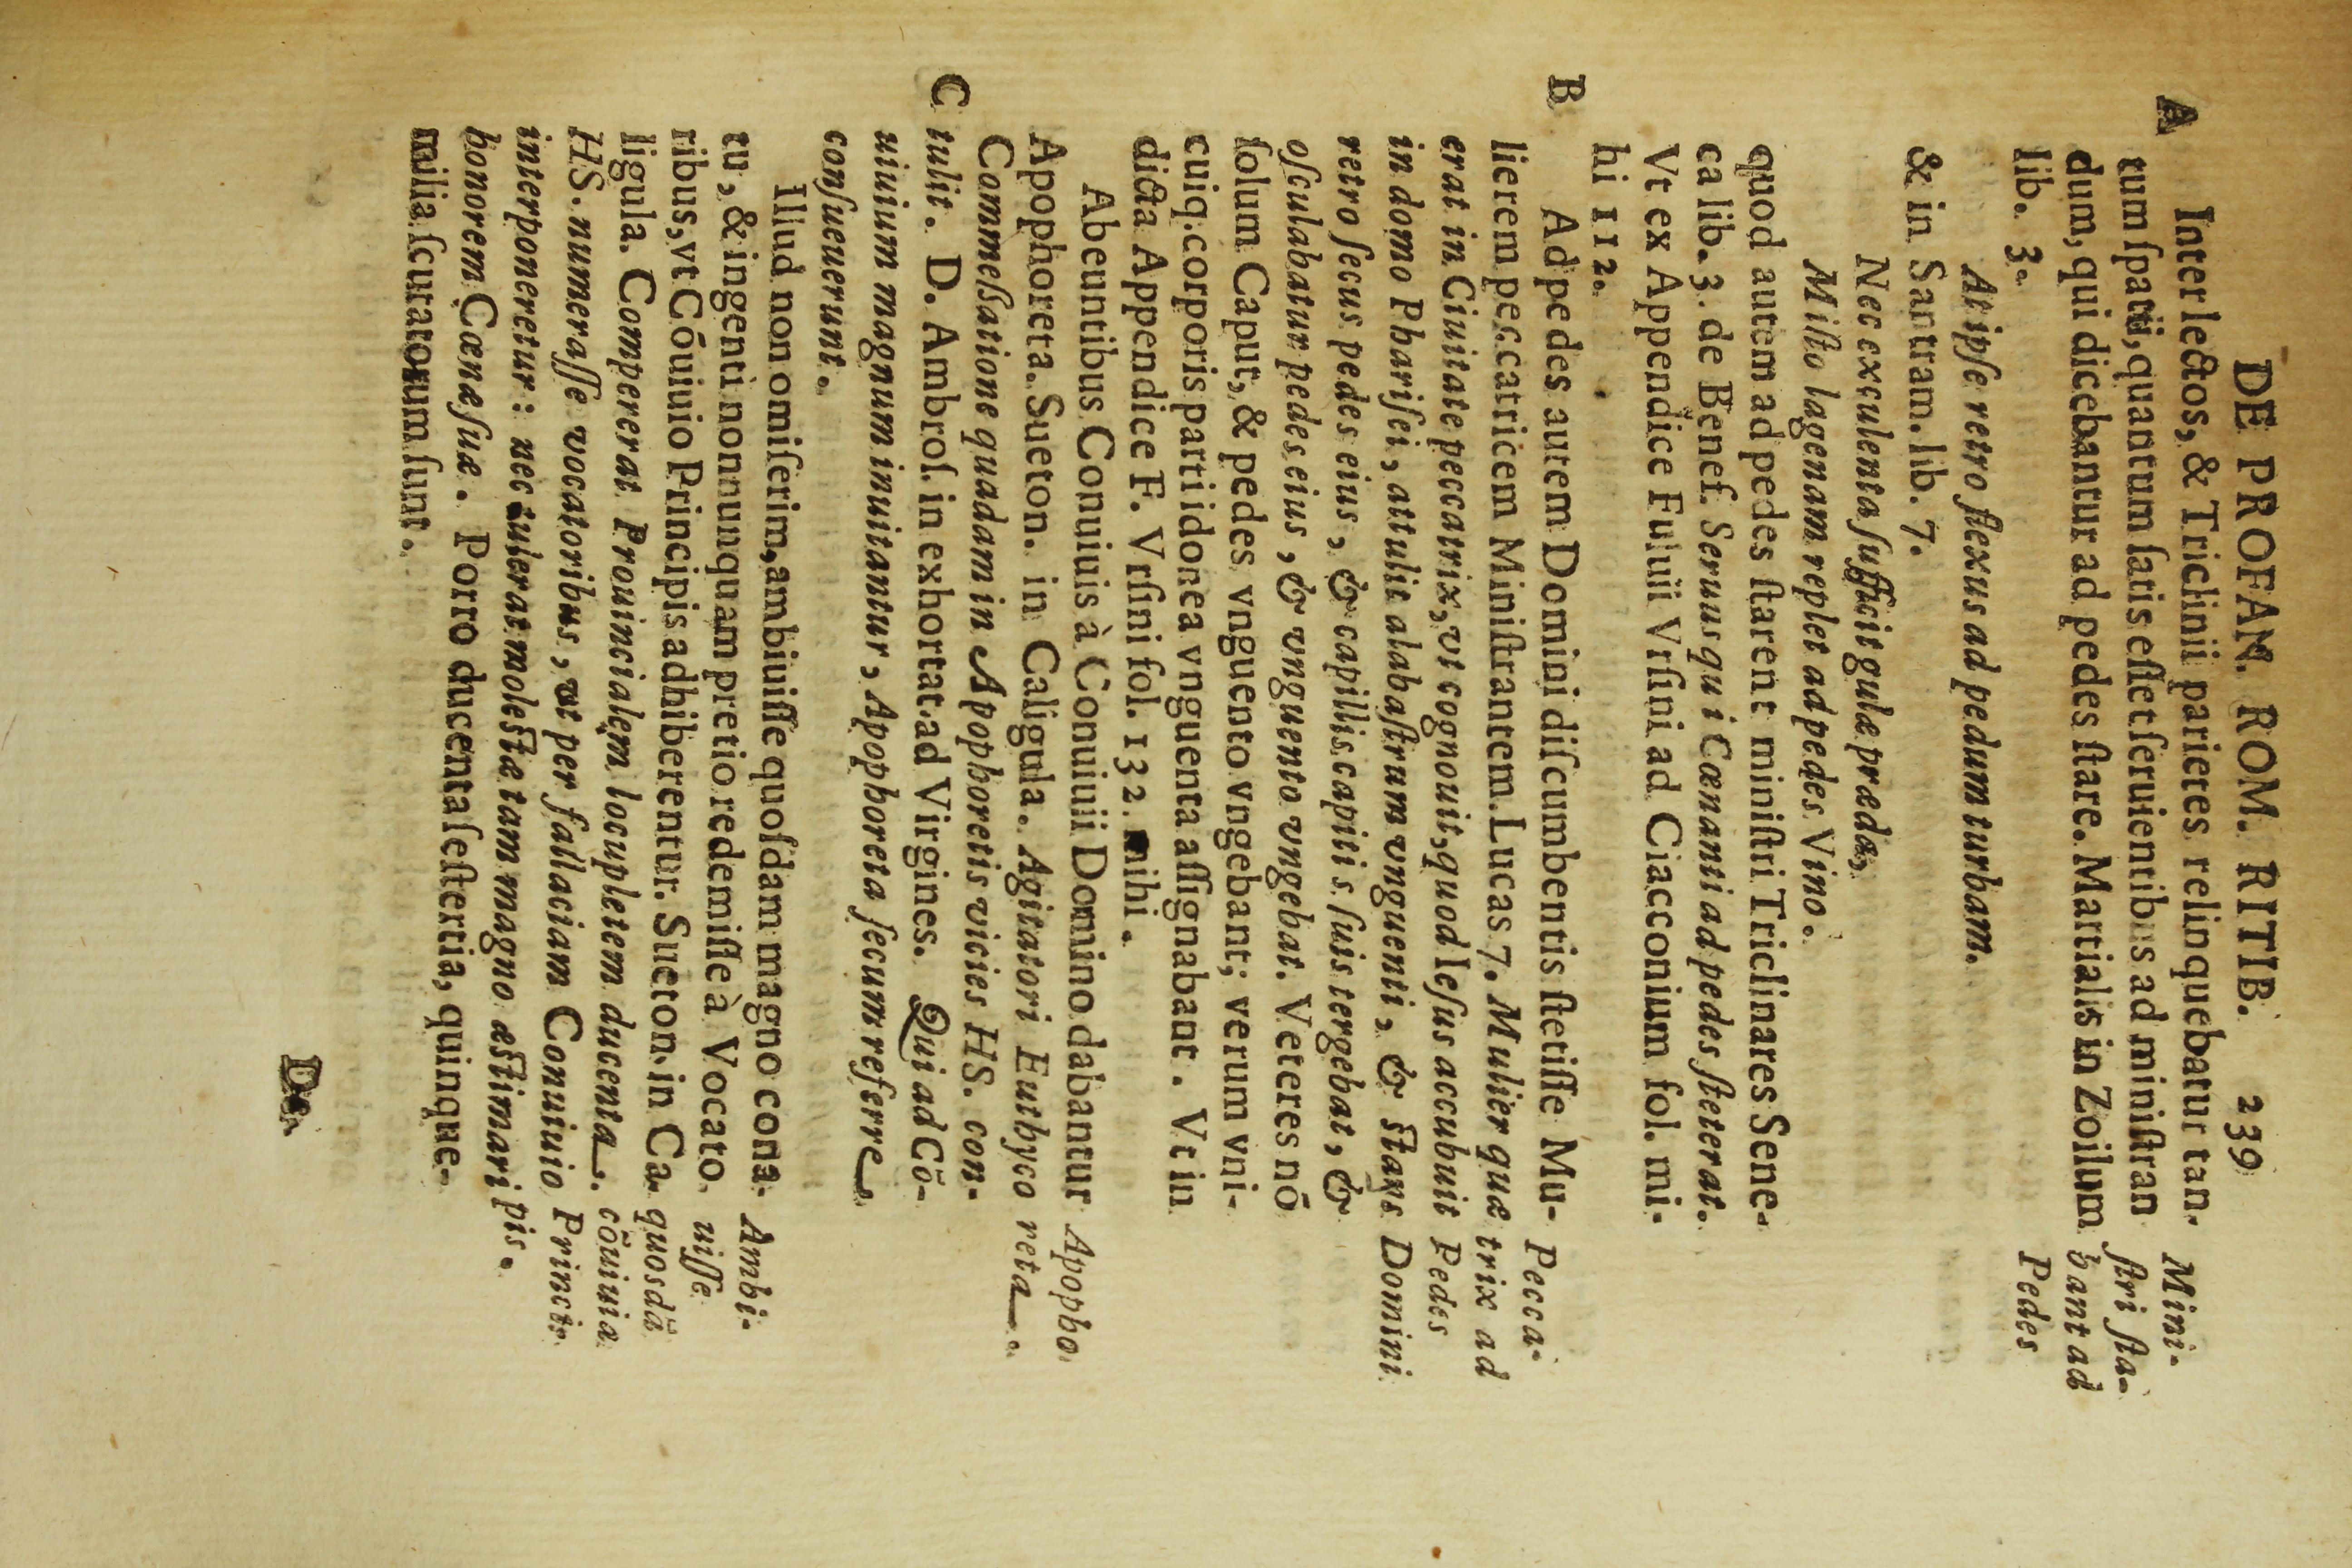 DE PROFAN. ROM. RITIB. 239
A Inter lectos, & Triclinii parietes relinquebatur tan-
tum ſpatii, quantum ſatis eſſet ſeruientibus ad miniſtran
dum, qui dicebantur ad pedes ſtare. Martialis in Zoilum
lib. 3.
Mini-
ſtri ſta-
bant ad
Pedes
At ipſe retro flexus ad pedum turbam.
& in Santram. lib. 7.
Nec exculenta ſufficit gulæ præda,
Miſto lagenam replet ad pedes Vino.
quod autem ad pedes ſtarent miniſtri Triclinares Sene-
ca lib. 3. de Benef. Seruus qui Cænanti ad pedes ſteterat.
Vt ex Appendice Fuluii Vrſini ad Ciacconium fol. mi-
hi 112.
B Ad pedes autem Domini diſcumbentis ſtetiſſe Mu-
lierem peccatricem Miniſtrantem. Lucas 7. Mulier quæ
erat in Ciuitate peccatrix, vt cognouit, quod Ieſus accubuit
in domo Phariſei, attulit alabaſtrum vnguenti, & ſtans
retro ſecus pedes eius, & capillis capitis ſuis tergebat, &
oſculabatur pedes eius, & vnguento vngebat. Veteres nō
ſolum Caput, & pedes vnguento vngebant; verum vni-
cuiq. corporis parti idonea vnguenta aſſignabant. Vt in
dicta Appendice F. Vrſini fol. 132. mihi.
Pecca-
trix ad
Pedes
Domini
Abeuntibus Conuiuis à Conuiuii Domino dabantur
Apophoreta. Sueton. in Caligula. Agitatori Euthyco
Commeſsatione quadam in Apophoretis vicies HS. con-
C tulit. D. Ambroſ. in exhortat. ad Virgines. Qui ad Cō-
uiuium magnum inuitantur, Apophoreta ſecum referre
conſueuerunt.
Apopho
reta.
Illud non omiſerim, ambiuiſſe quoſdam magno cona-
tu, & ingenti nonnunquam pretio redemiſſe à Vocato
ribus, vt Cōuiuio Principis adhiberentur. Sueton. in Ca-
ligula. Compererat Prouincialem locupletem ducenta.
HS. numeraſſe vocatoribus, vt per fallaciam Conuiuio
interponeretur: nec tulerat moleſtæ tam magno æſtimari
honorem Cænæ ſuæ. Porro ducenta ſeſtertia, quinque-
milia ſcutatorum ſunt.
Ambi-
uiſſe
quosdã
cōuiuia
Princi-
pis.
De.